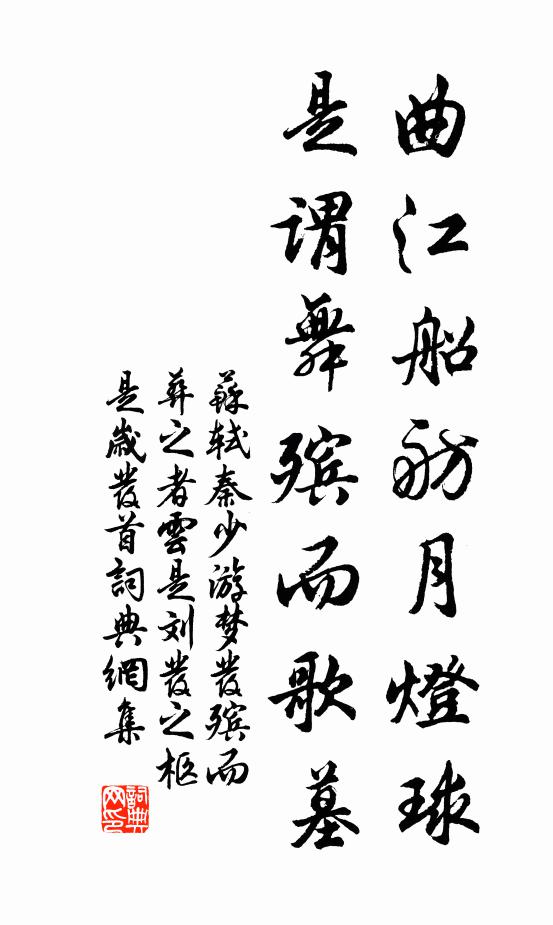 曲江船舫月燈球
是謂舞殯而歌墓
蘇軾秦少游梦發殯而
葬之者雲是刘發之柩
是歲發首詞典網集
詞典网印